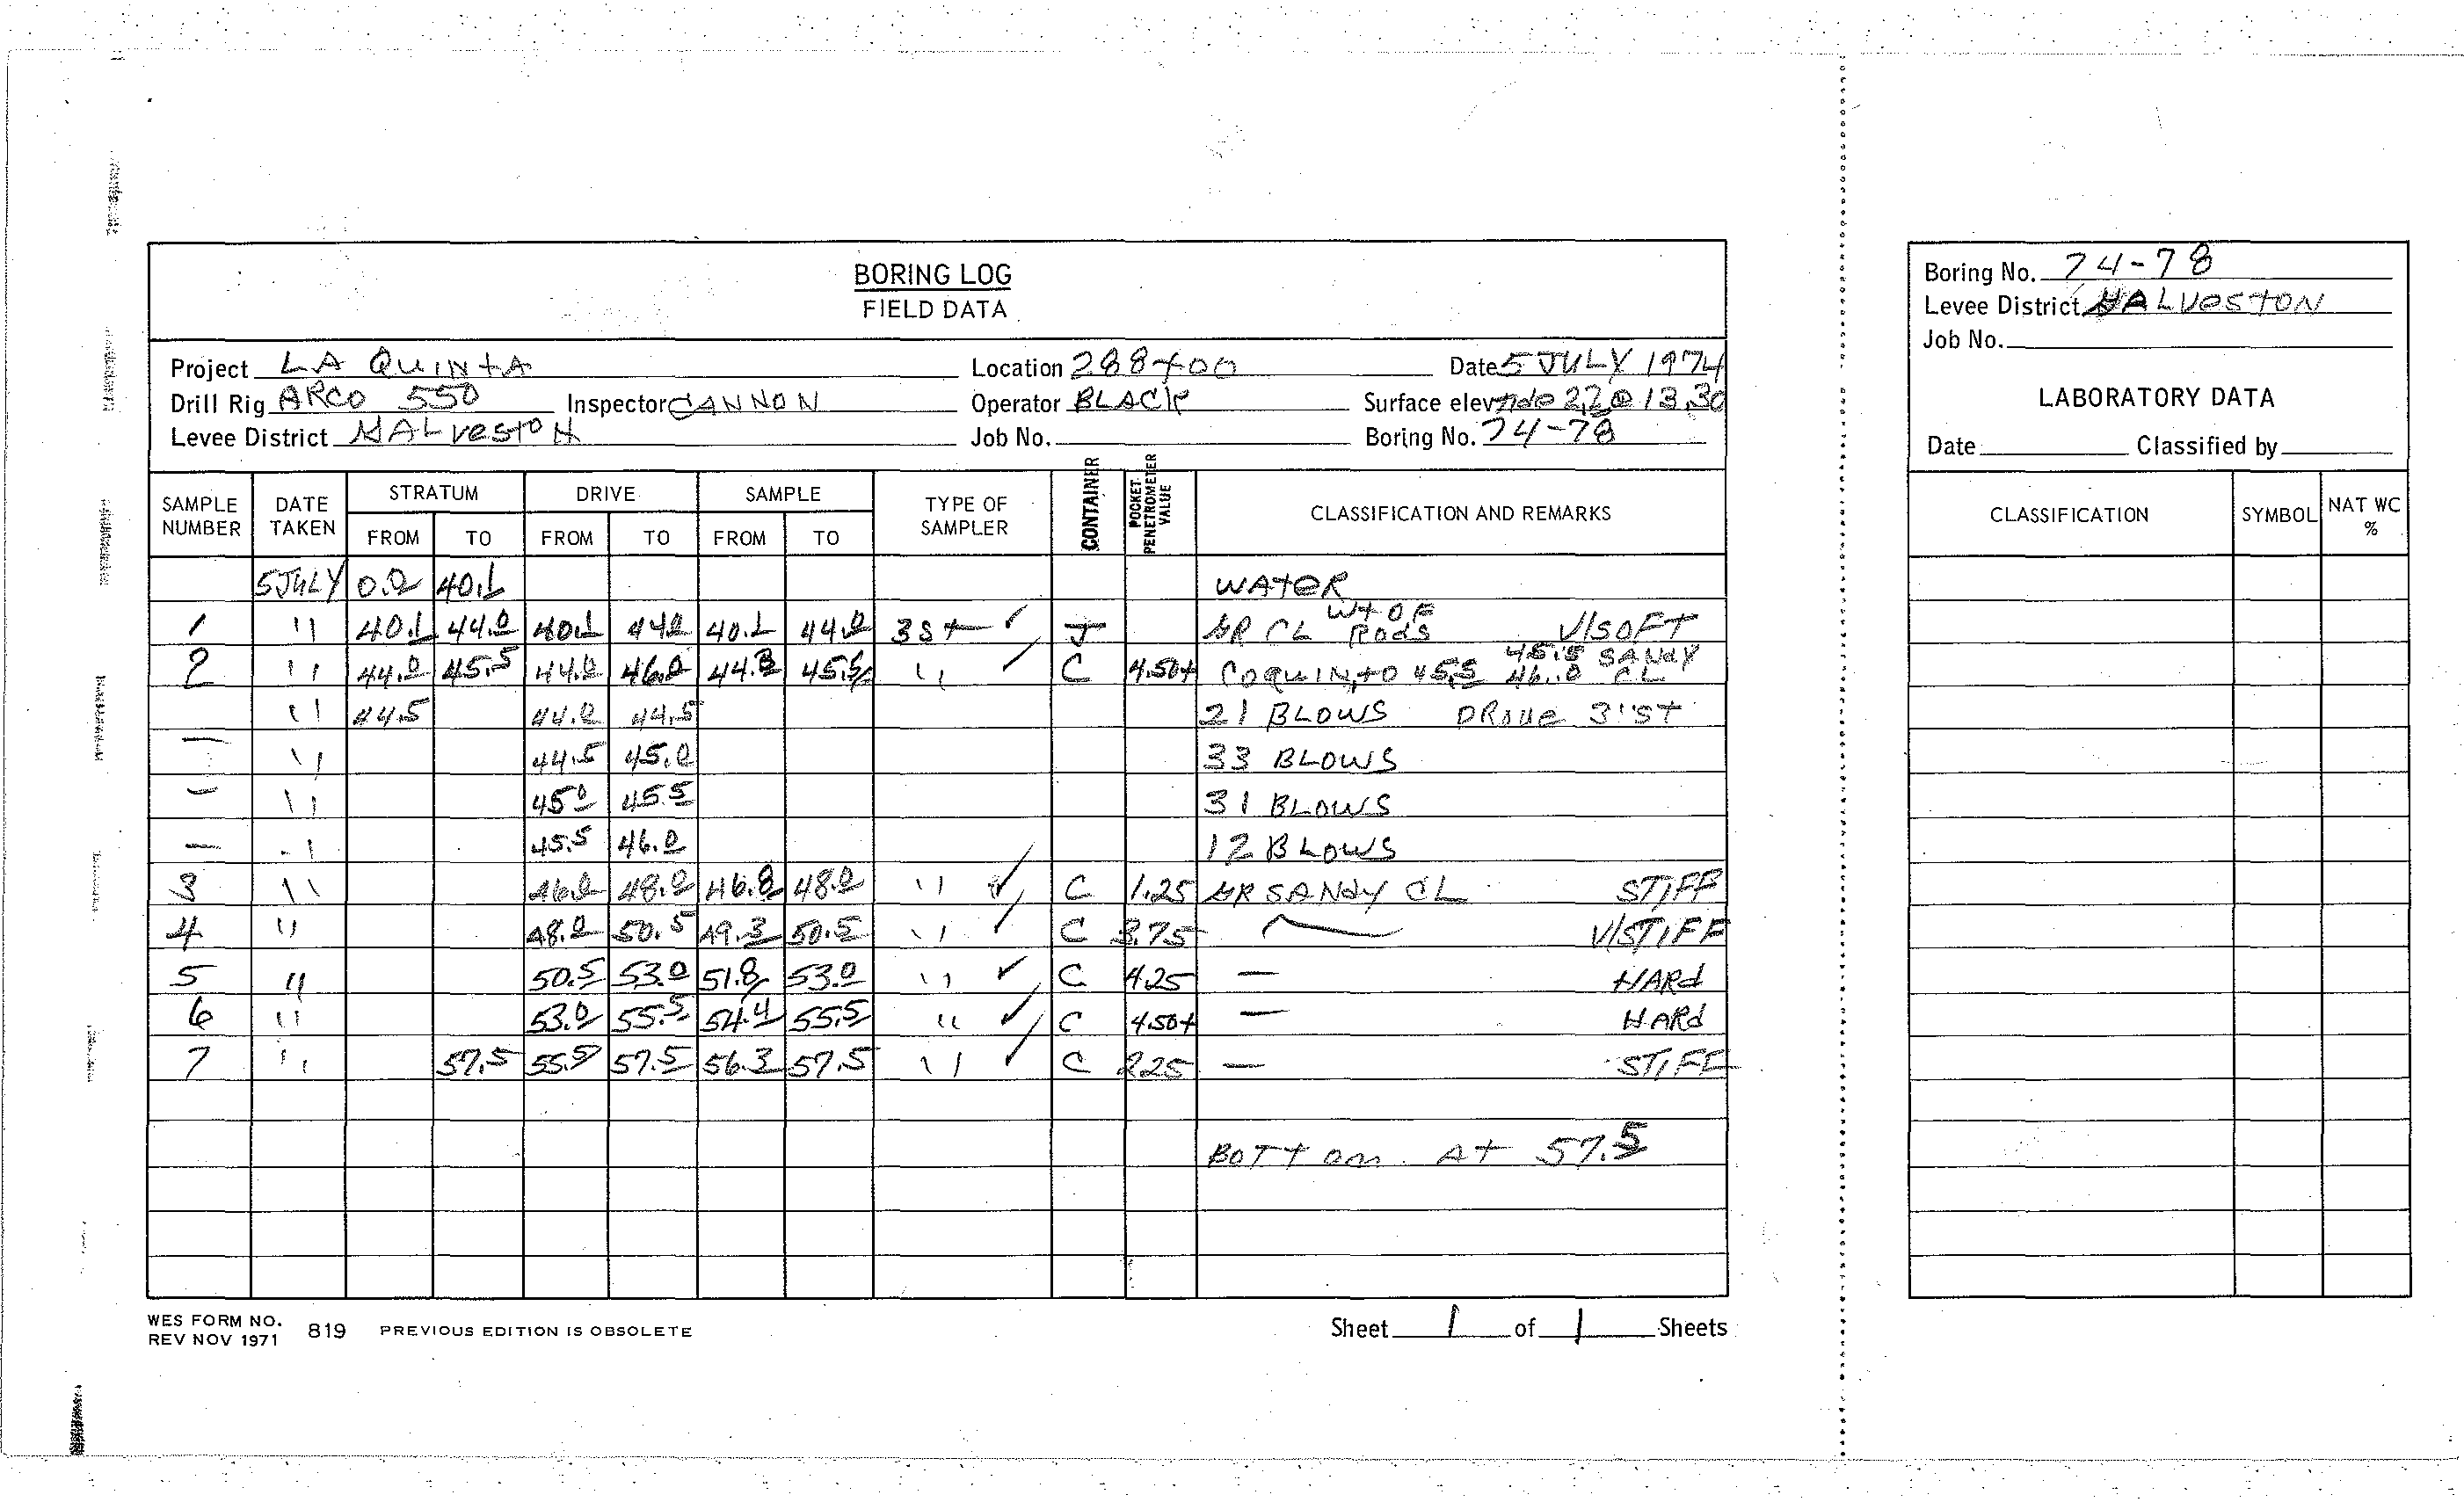 BORING LOG
FIELD DATA
Project LA QUINTA Location 288+00 Date 5 JULY 1974
Drill Rig ARCO 550 Inspector CANNON Operator BLACK Surface elev tide 2.2 @ 13.30
Levee District GALVESTON Job No. Boring No. 74-78
SAMPLE NUMBER DATE TAKEN STRATUM FROM TO DRIVE FROM TO SAMPLE FROM TO TYPE OF SAMPLER CONTAINER POCKET PENETROMETER VALUE CLASSIFICATION AND REMARKS
5 JULY 0.0 40.1 WATER
1 " 40.1 44.0 40.1 44.0 40.1 44.0 3 ST ✓ J GR CL WT OF RODS V/SOFT
2 " 44.0 45.5 44.0 46.0 44.3 45.5 " ✓ C 4.50+ COQUIN, TO 45.5 45.5 46.0 SANDY CL
" 44.5 44.0 44.5 21 BLOWS DROVE 3" ST
— " 44.5 45.0 33 BLOWS
— " 45.0 45.5 31 BLOWS
— " 45.5 46.0 12 BLOWS
3 " 46.0 48.0 46.8 48.0 " ✓ C 1.25 GR SANDY CL STIFF
4 " 48.0 50.5 49.3 50.5 " ✓ C 3.75 — V/STIFF
5 " 50.5 53.0 51.8 53.0 " ✓ C 4.25 — HARD
6 " 53.0 55.5 54.4 55.5 " ✓ C 4.50+ — HARD
7 " 57.5 55.5 57.5 56.3 57.5 " ✓ C 2.25 — STIFF
BOTTOM AT 57.5
WES FORM NO. 819 PREVIOUS EDITION IS OBSOLETE
REV NOV 1971
Sheet 1 of 1 Sheets
Boring No. 74-78
Levee District GALVESTON
Job No.
LABORATORY DATA
Date Classified by
CLASSIFICATION SYMBOL NAT WC %